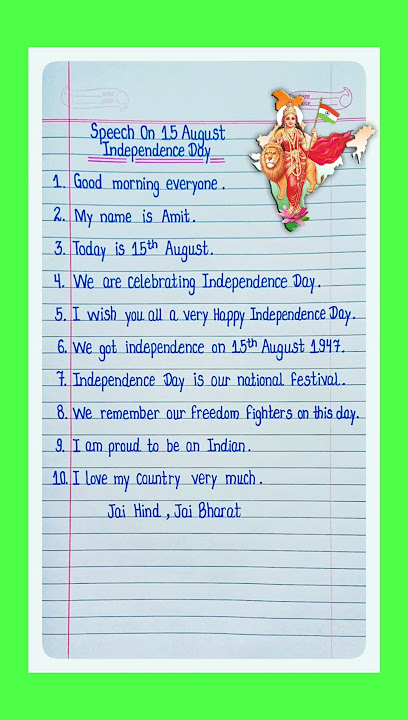 Speech On 15 August
Independence Day
1. Good morning everyone.
2. My name is Amit.
3. Today is 15th August.
4. We are celebrating Independence Day.
5. I wish you all a very Happy Independence Day.
6. We got independence on 15th August 1947.
7. Independence Day is our national festival.
8. We remember our freedom fighters on this day.
9. I am proud to be an Indian.
10. I love my country very much.
Jai Hind, Jai Bharat